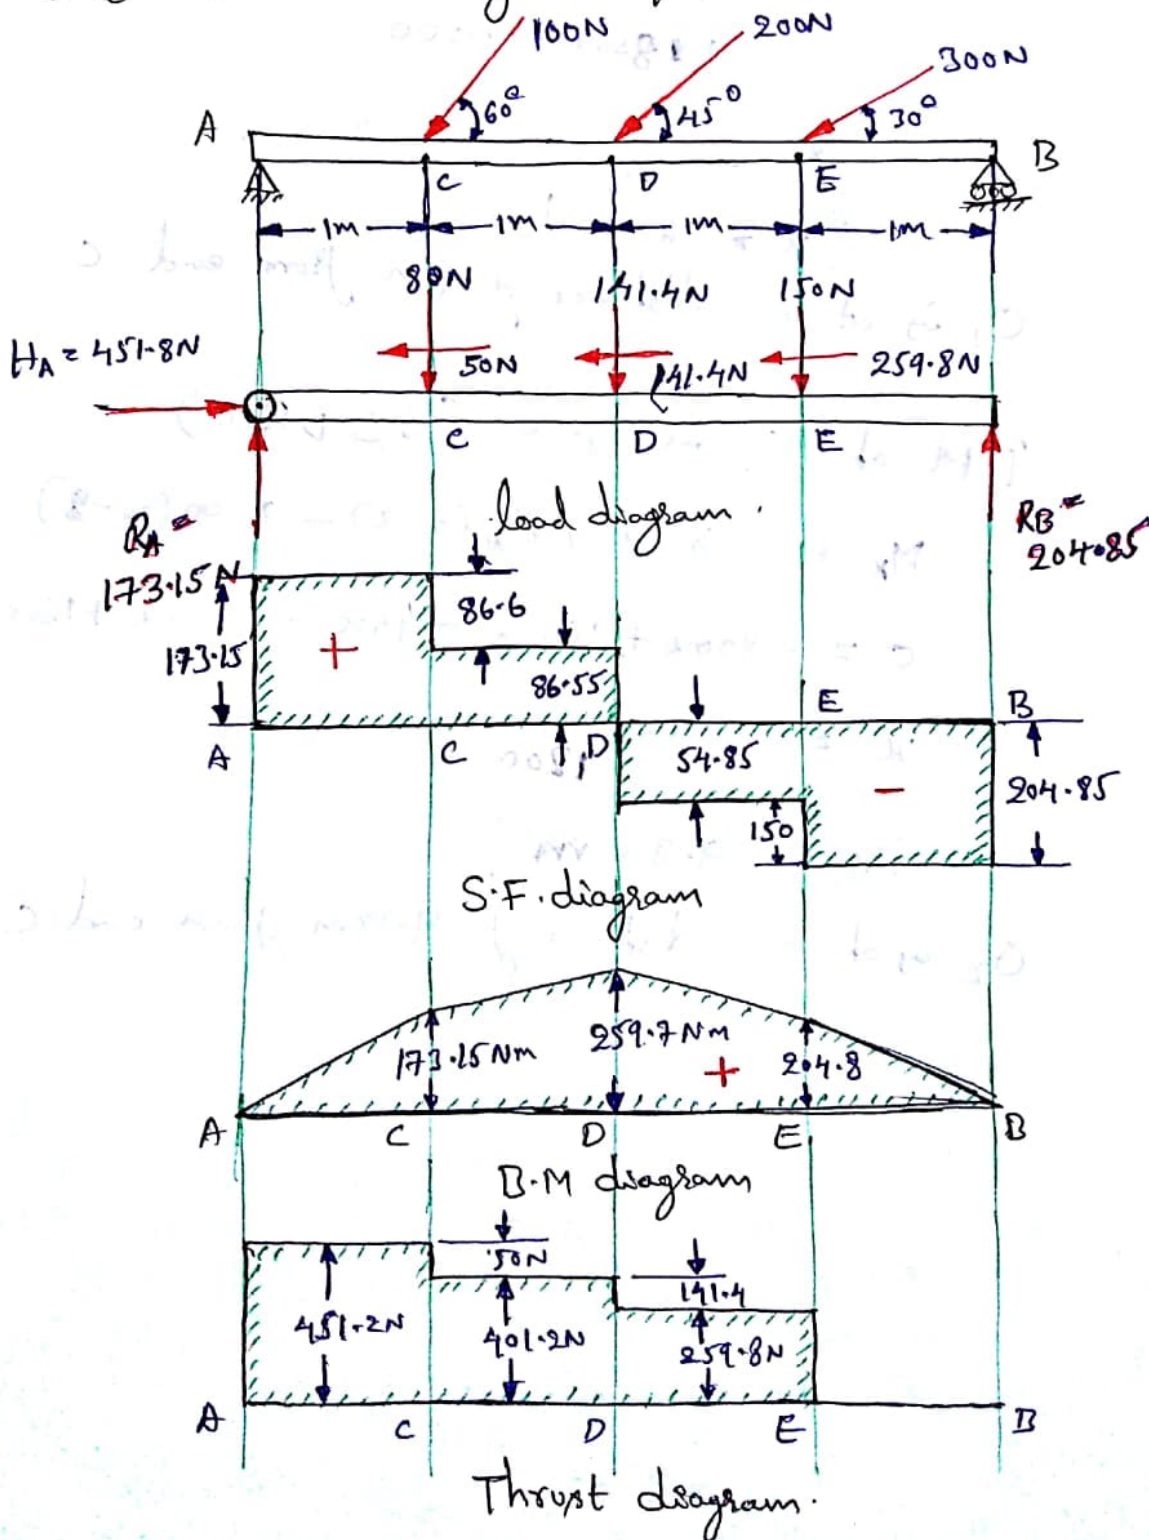 100N 200N 300N
A 60° 45° 30° B
C D E
1m 1m 1m 1m
80N 141.4N 150N
HA = 451.8N
50N 141.4N 259.8N
C D E
load diagram.
RA =
173.15N
RB =
204.85
86.6
173.15 +
86.55
E B
A C D
54.85
- 204.85
150
S.F. diagram
173.15Nm 259.7Nm + 204.8
A C D E B
B.M diagram
50N
141.4
451.2N 401.2N 259.8N
A C D E B
Thrust diagram.